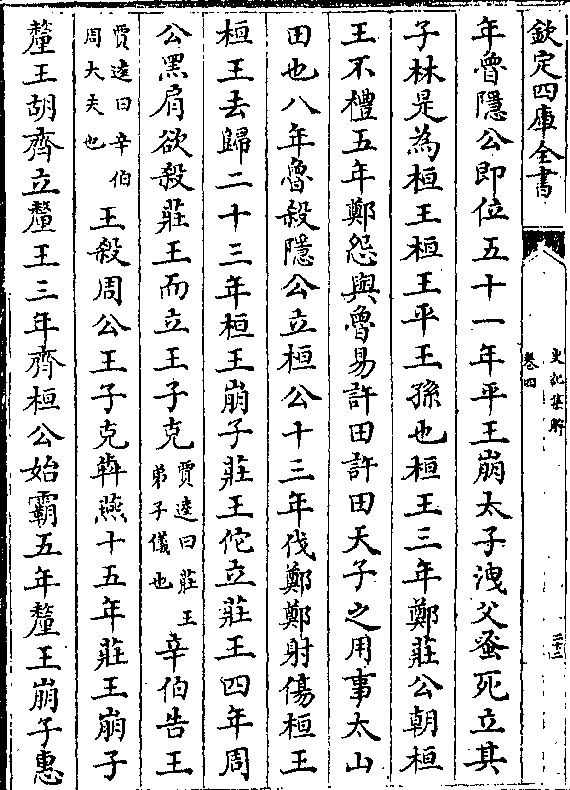 欽定四庫全書
史記集解
卷四
二十二
年魯隱公即位五十一年平王崩太子洩父蚤死立其
子林是為桓王桓王平王孫也桓王三年鄭莊公朝桓
王不禮五年鄭怨與魯易許田許田天子之用事太山
田也八年魯殺隱公立桓公十三年伐鄭鄭射傷桓王
桓王去歸二十三年桓王崩子莊王佗立莊王四年周
公黑肩欲殺莊王而立王子克賈逵曰莊王弟子儀也辛伯告王
賈逵曰辛伯周大夫也王殺周公王子克犇燕十五年莊王崩子
釐王胡齊立釐王三年齊桓公始霸五年釐王崩子惠